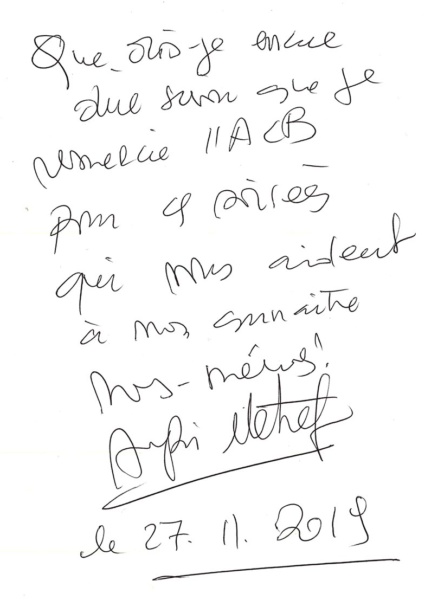 Que dois-je encore
dire sinon que je
remercie l'ACB
pour ces soirées
qui nous aident
à nous connaître
nous-mêmes !
Arezki Metref
le 27. 11. 2019